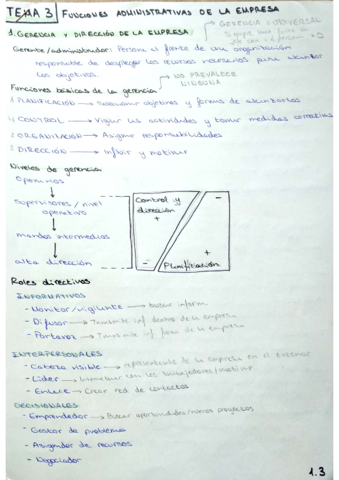 TEMA 3 FUNCIONES ADMINISTRATIVAS DE LA EMPRESA
1. GERENCIA Y DIRECCIÓN DE LA EMPRESA → GERENCIA UNIVERSAL
Gerente/administrador: Persona al frente de una organización
responsable de desplegar los recursos necesarios para alcanzar
los objetivos.
NO PREVALECE
NINGUNA
Funciones básicas de la gerencia
1 PLANIFICACIÓN → Seleccionar objetivos y formas de alcanzarlos
4 CONTROL → Vigilar las actividades y tomar medidas correctivas
2 ORGANIZACIÓN → Asignar responsabilidades
3 DIRECCIÓN → Influir y motivar
Niveles de gerencia
Operarios
Supervisores / nivel
operativo
mandos intermedios
alta dirección
Control y
dirección
+
-
-
+
Planificación
Roles directivos
INFORMATIVOS
- Monitor/vigilante → buscar inform.
- Difusor → Transmite inf. dentro de la empresa
- Portavoz → Transmite inf. fuera de la empresa
INTERPERSONALES
- Cabeza visible → representante de la empresa en el exterior
- Líder → con los trabajadores/motivar
- Enlace → Crear red de contactos
DECISIONALES
- Emprendedor → Buscar oportunidades/nuevos proyectos
- Gestor de problemas
- Asignador de recursos
- Negociador
1.3